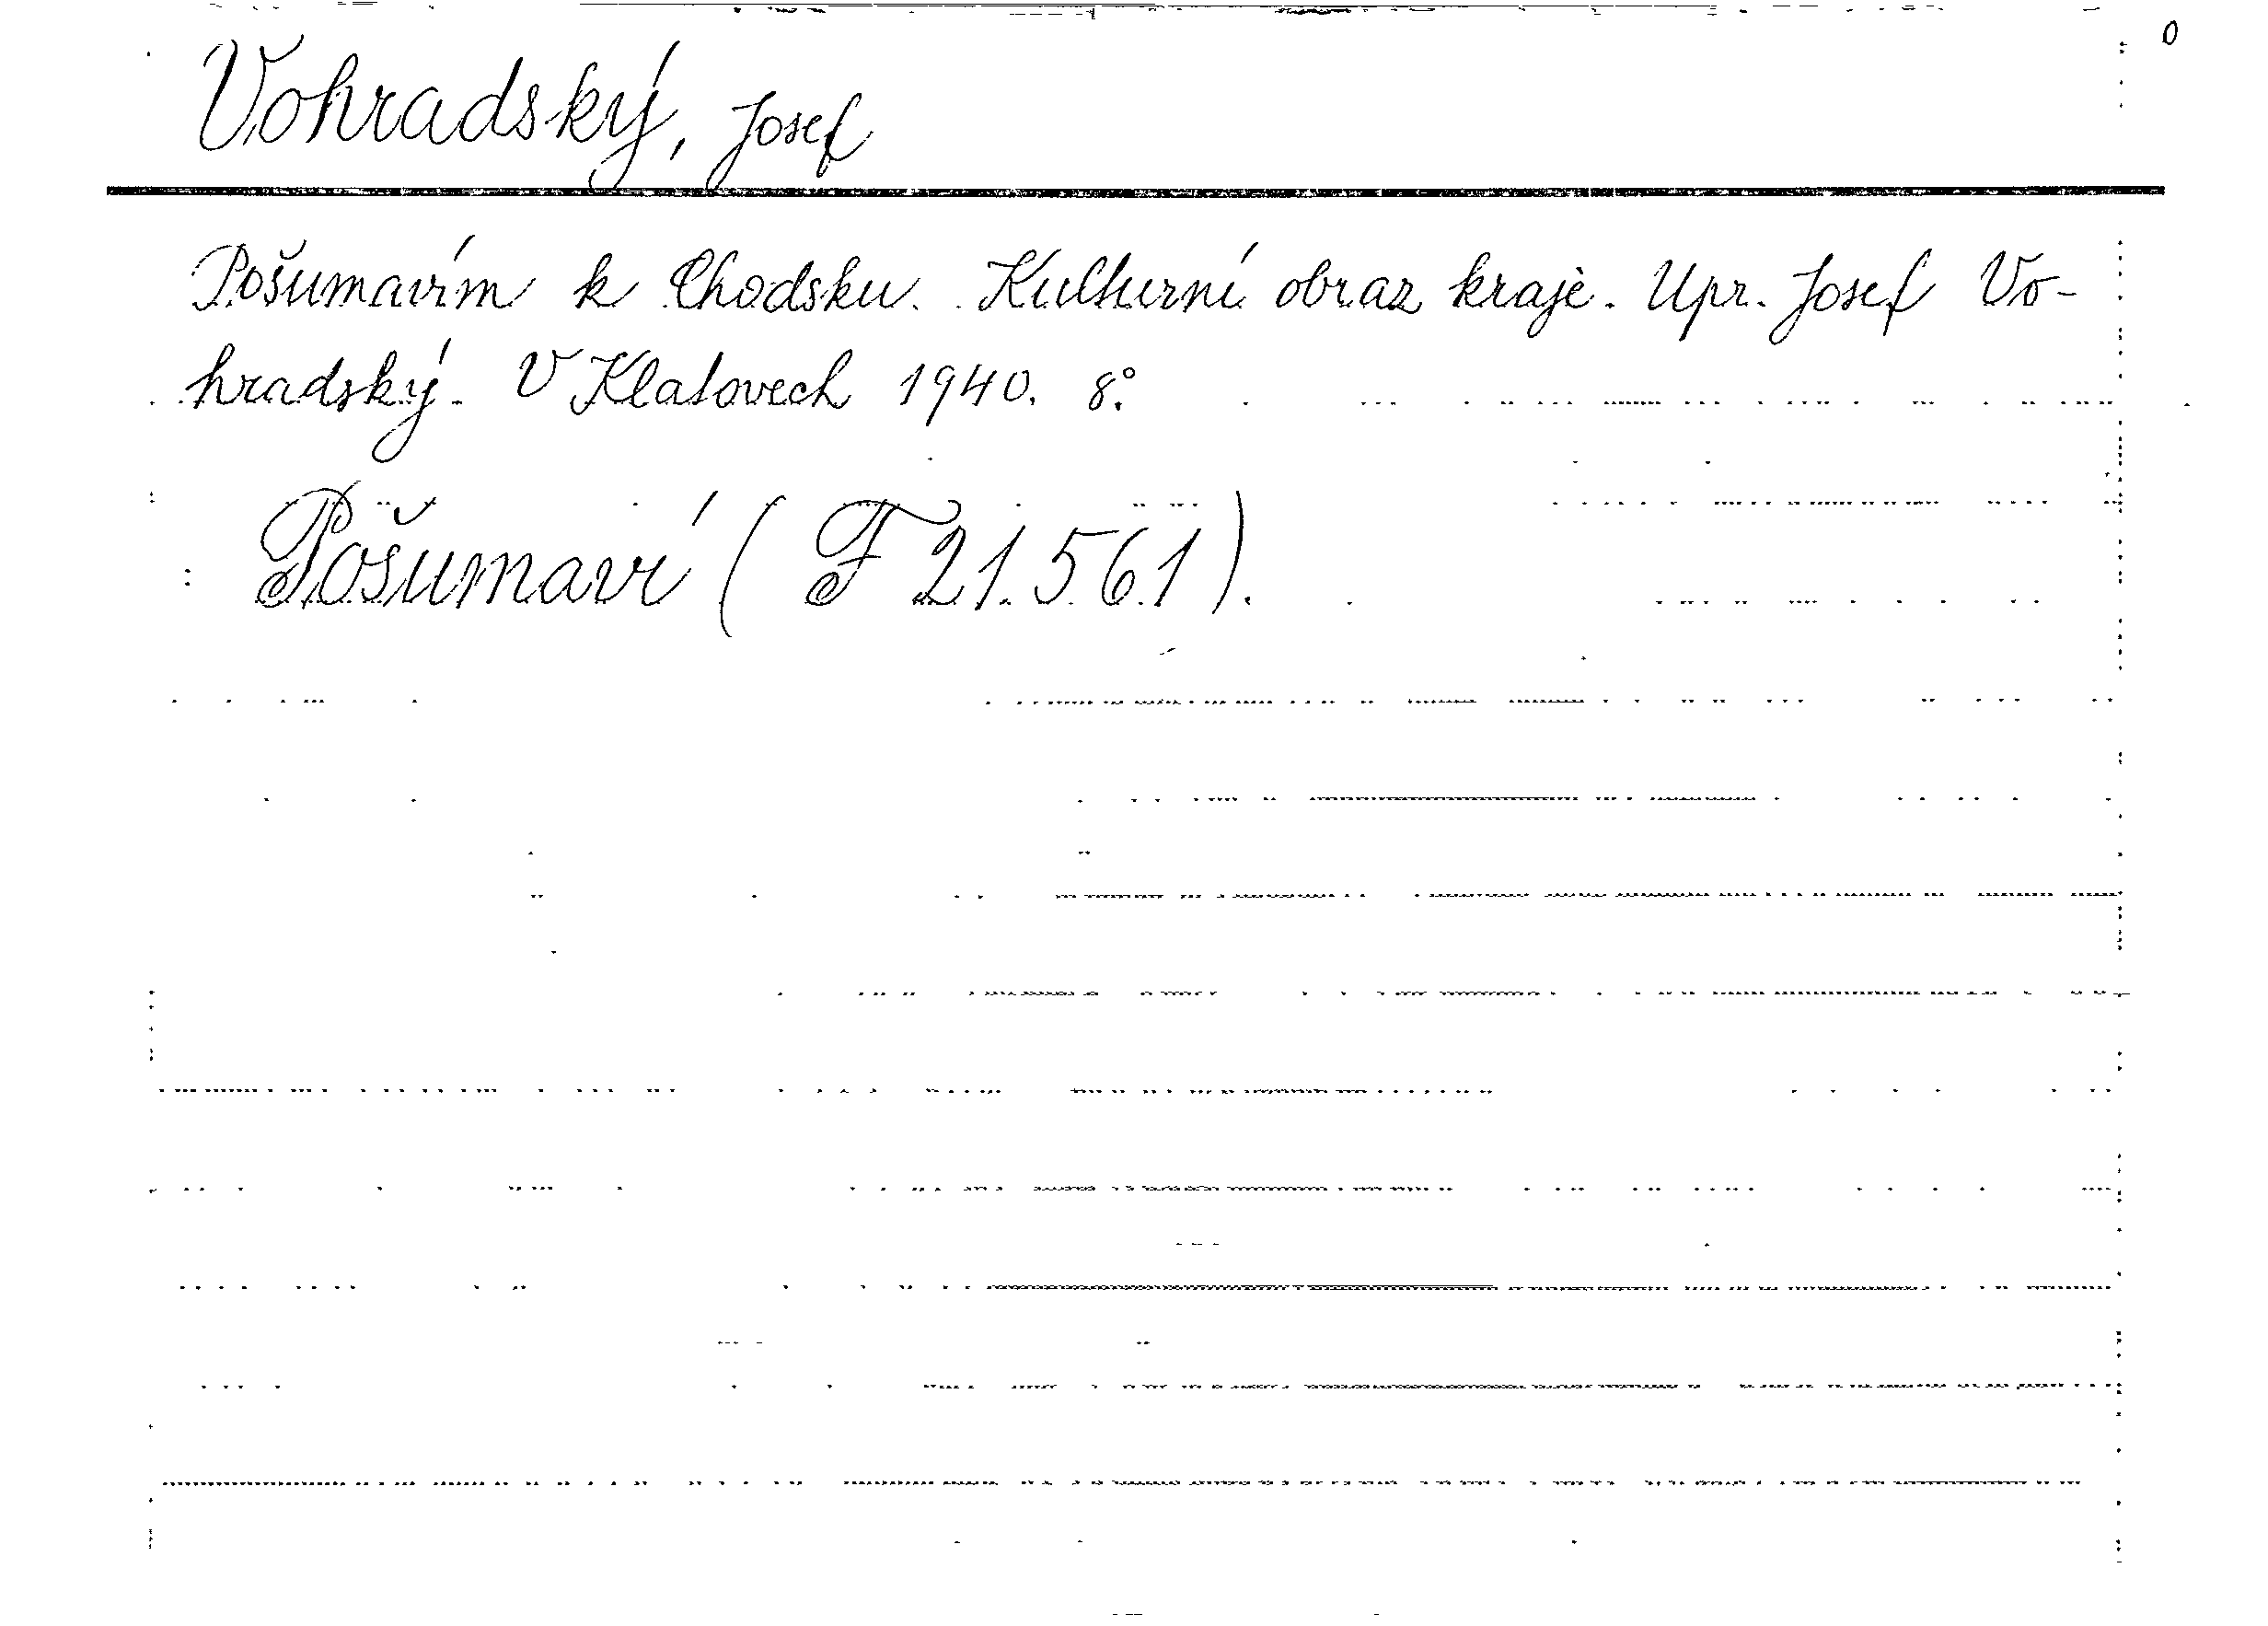 0
Vohradský, Josef
Pošumavím k Chodsku. Kulturní obraz kraje. Upr. Josef Vo-
hradský. V Klatovech 1940. 8°.
Pošumaví (F 21.561).